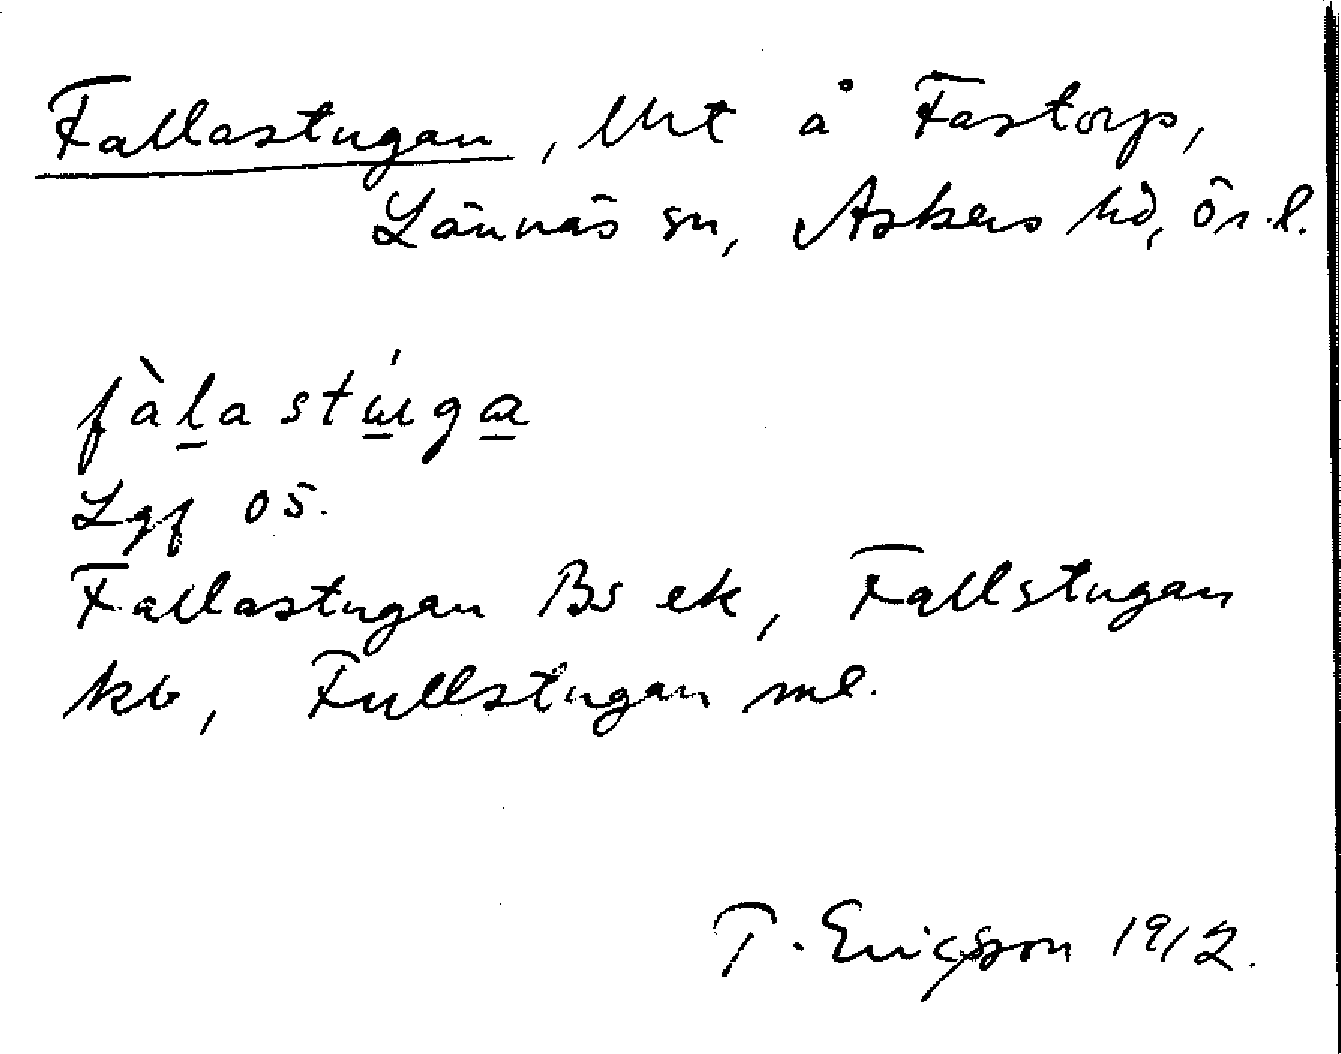 Fallastugan, lht å Fastorp,
Lännäs sn, Askers hd, Ör. l.
fàlastúga
Lgf 05.
Fallastugan Bs ek, Fallstugan
kb, Fullstugan ml.
T. Ericsson 1912.